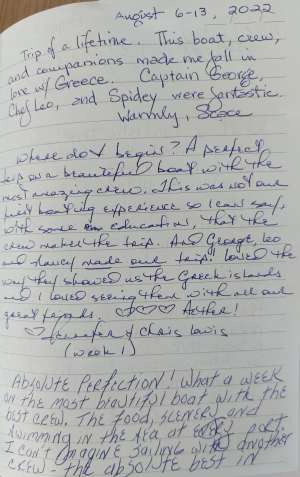 August 6-13, 2022
Trip of a lifetime. This boat, crew,
and companions made me fall in
love w/ Greece. Captain George,
Chef Leo, and Spidey were fantastic.
Warmly,
Where do I begin? A perfect
trip on a beautiful boat with the
most amazing crew. This was not our
first boating experience so I can say,
with some education, that the
crew makes the trip. And George, Leo
and made our trip. loved the
way they showed us the Greek islands
and I loved seeing them with all our
great friends. ♡♡♡ Aether!
♡ Jennifer & Chris
(week 1)
Absolute Perfection! What a week
on the most beautiful boat with the
best crew. The food, scenery and
swimming in the sea at every port.
I can't imagine sailing with another
crew - the absolute best in